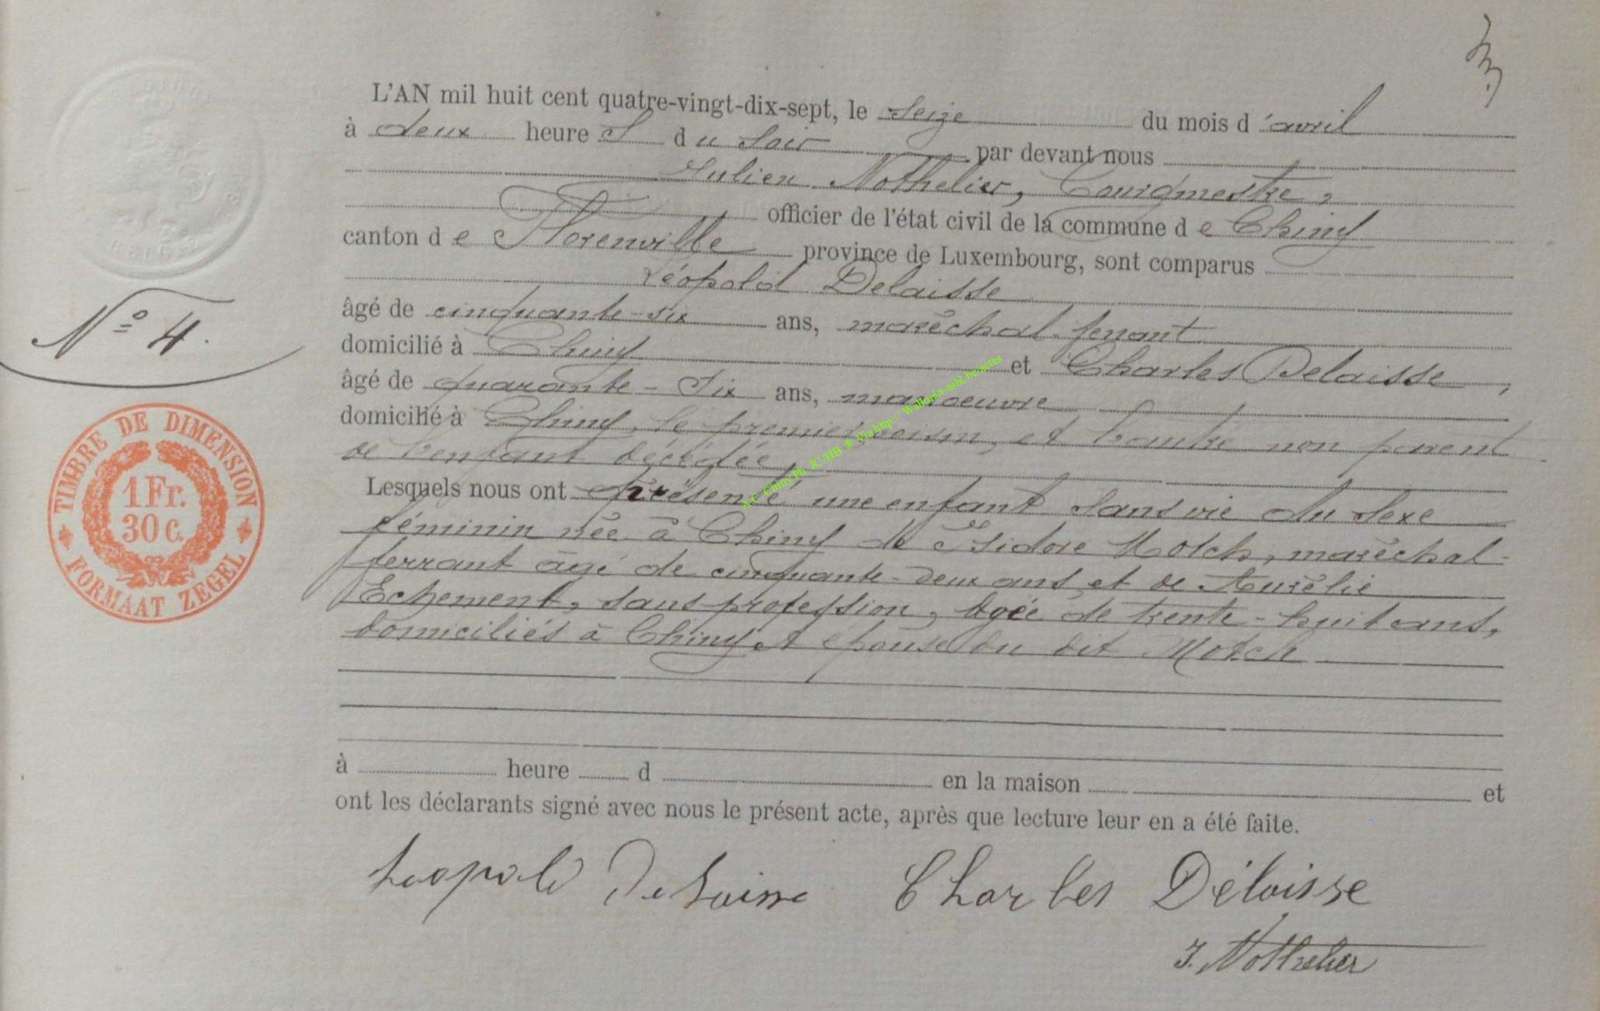 L'AN mil huit cent quatre-vingt-dix-sept, le Seize du mois d'avril
à deux heure s du soir par devant nous
Julien Nothelier, Bourgmestre,
officier de l'état civil de la commune d e Chiny
canton d e Florenville province de Luxembourg, sont comparus
Léopold Delaisse
âgé de cinquante-six ans, maréchal ferrant
domicilié à Chiny et Charles Delaisse,
âgé de quarante-six ans, manoeuvre
domicilié à Chiny, le premier voisin, et l'autre non parent
de l'enfant décédée,
Lesquels nous ont présenté une enfant sans vie du sexe
féminin née à Chiny de Isidore Motch, maréchal-
ferrant âgé de cinquante-deux ans et de Aurélie
Echement, sans profession, âgée de trente-huit ans,
domiciliés à Chiny et épouse du dit Motch
à heure d en la maison et
ont les déclarants signé avec nous le présent acte, après que lecture leur en a été faite.
Léopold Delaisse Charles Délaisse
J. Nothelier
N° 4.
TIMBRE DE DIMENSION
1 Fr.
30 C.
FORMAAT ZEGEL